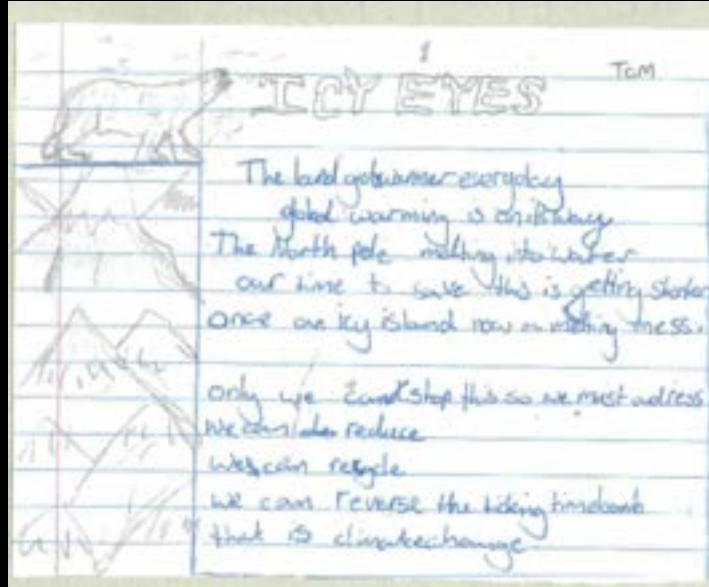 Tom
ICY EYES
The land gets warmer everyday
global warming is on its way
The North pole melting into water
our time to save this is getting shorter
once an icy island now a melting mess.
only we can stop this so we must adress
We can reduce
We can recycle
We can reverse the ticking timebomb
that is climatechange